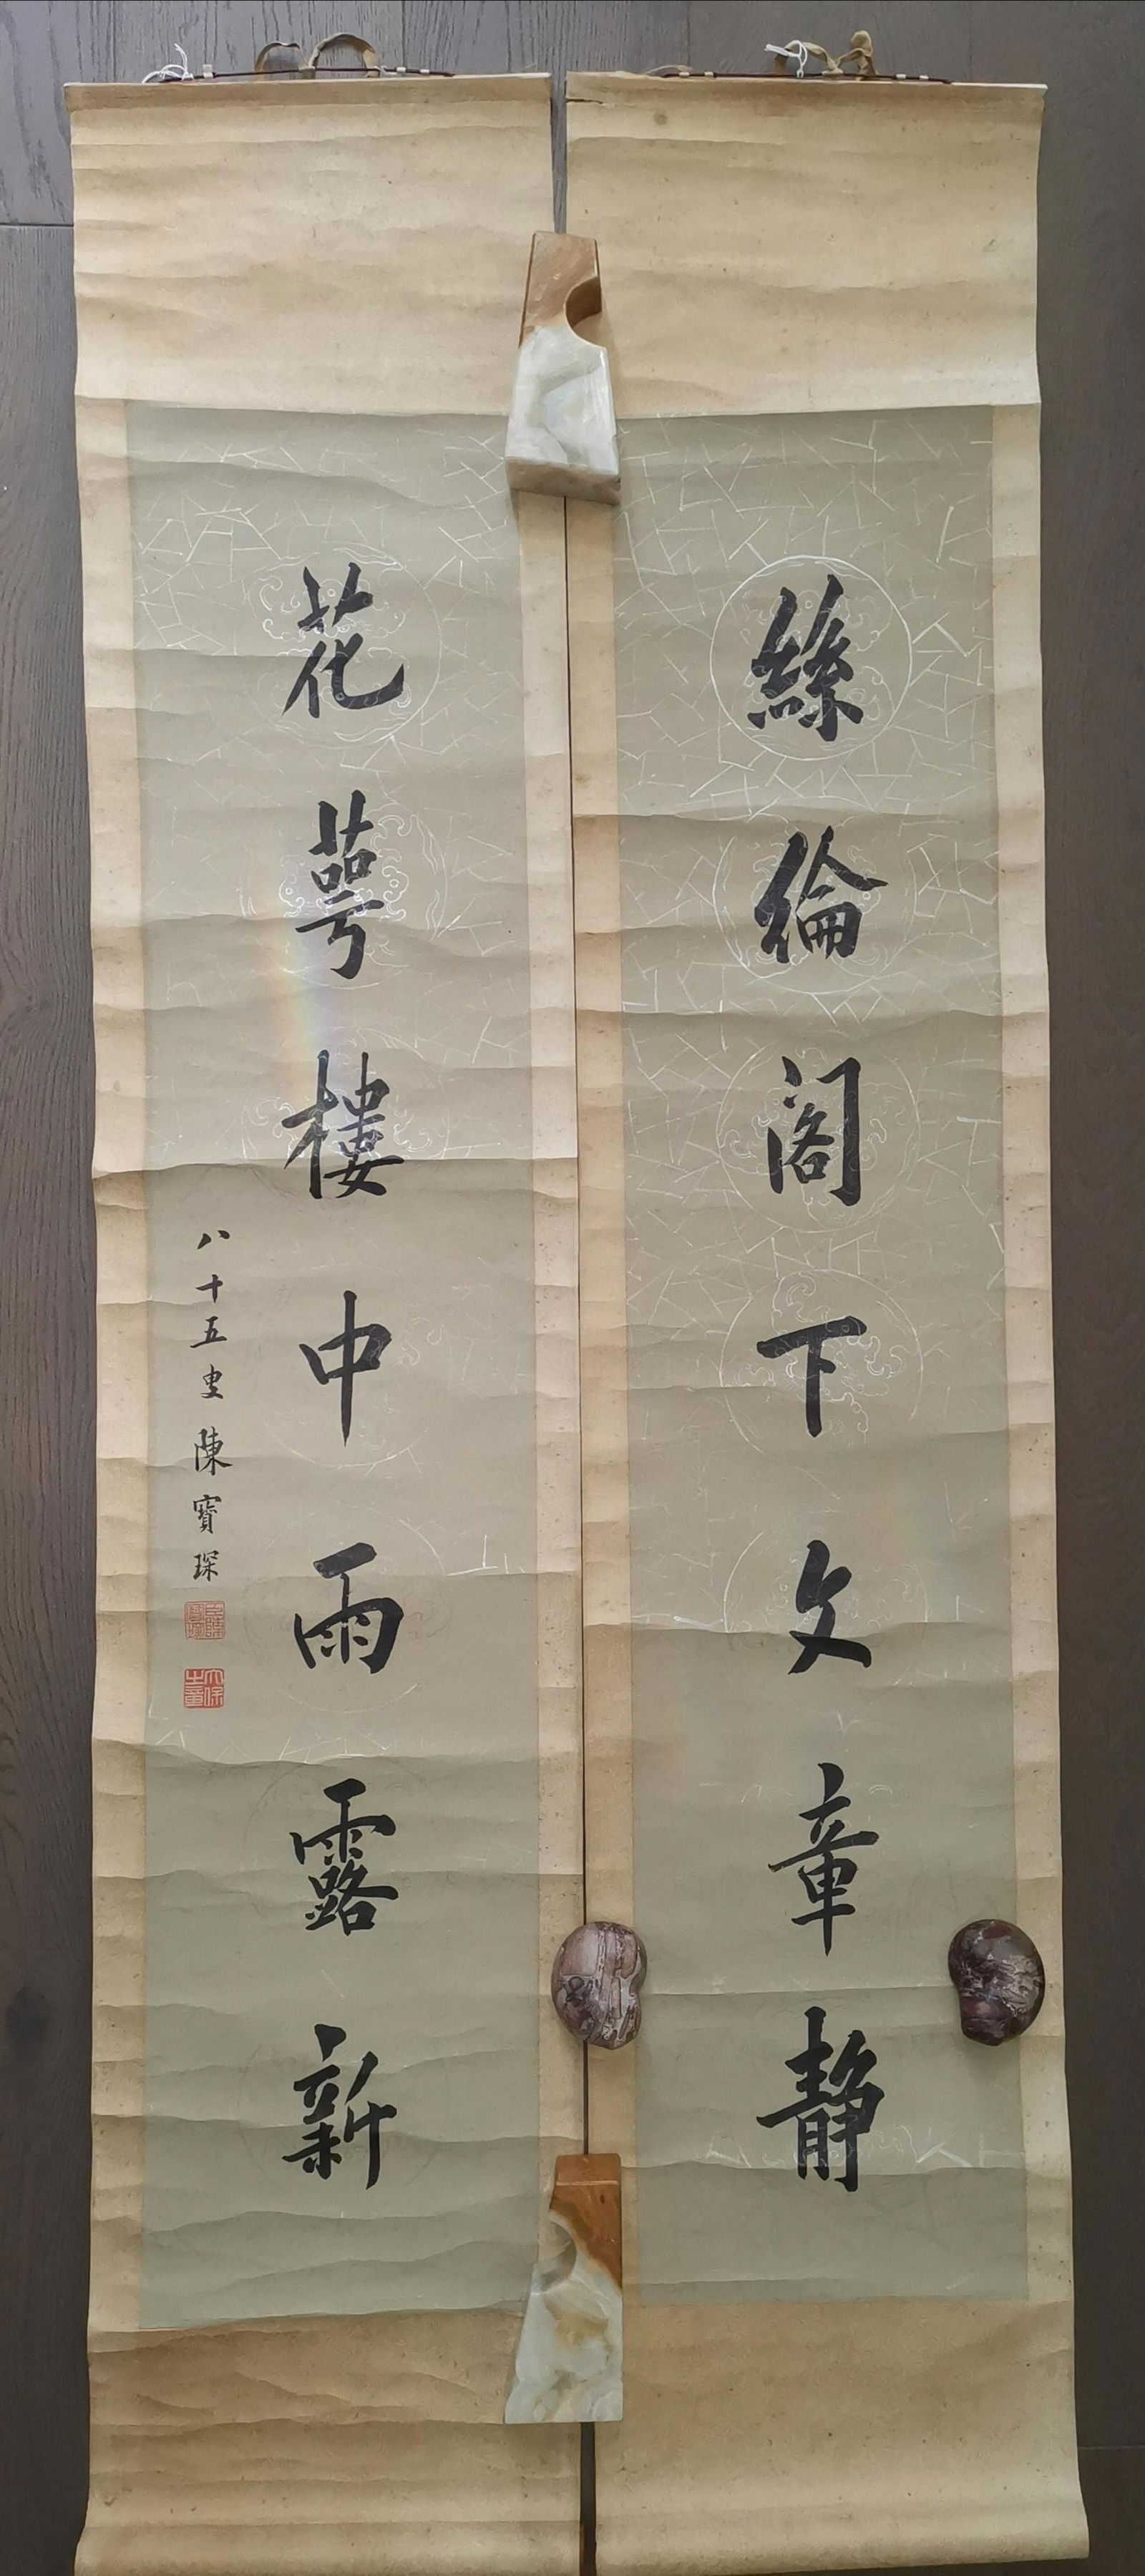 絲綸阁下文章靜
花萼樓中雨露新
八十五叟陳寶琛